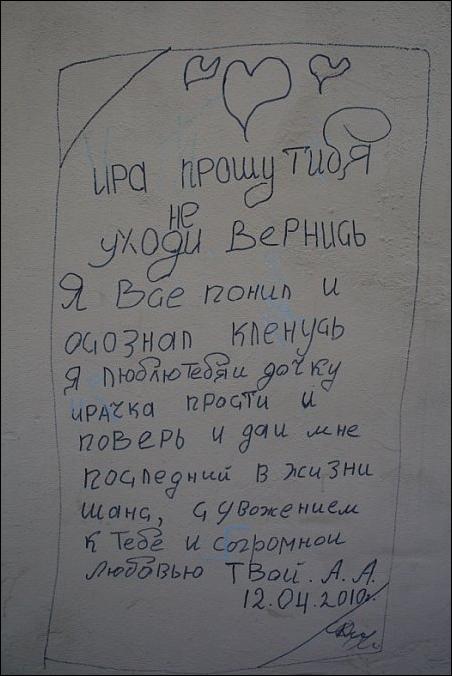 ИРА ПРОШУ ТИБЯ
не
уходи ВеРНИСЬ
Я Все понил и
осознал кленусь
я люблю тебя и дочку
ирачка прости и
поверь и дай мне
последний в жизни
шанс, с увожением
к тебе и с огромной
любовью Твой. А.А.
12.04.2010г.